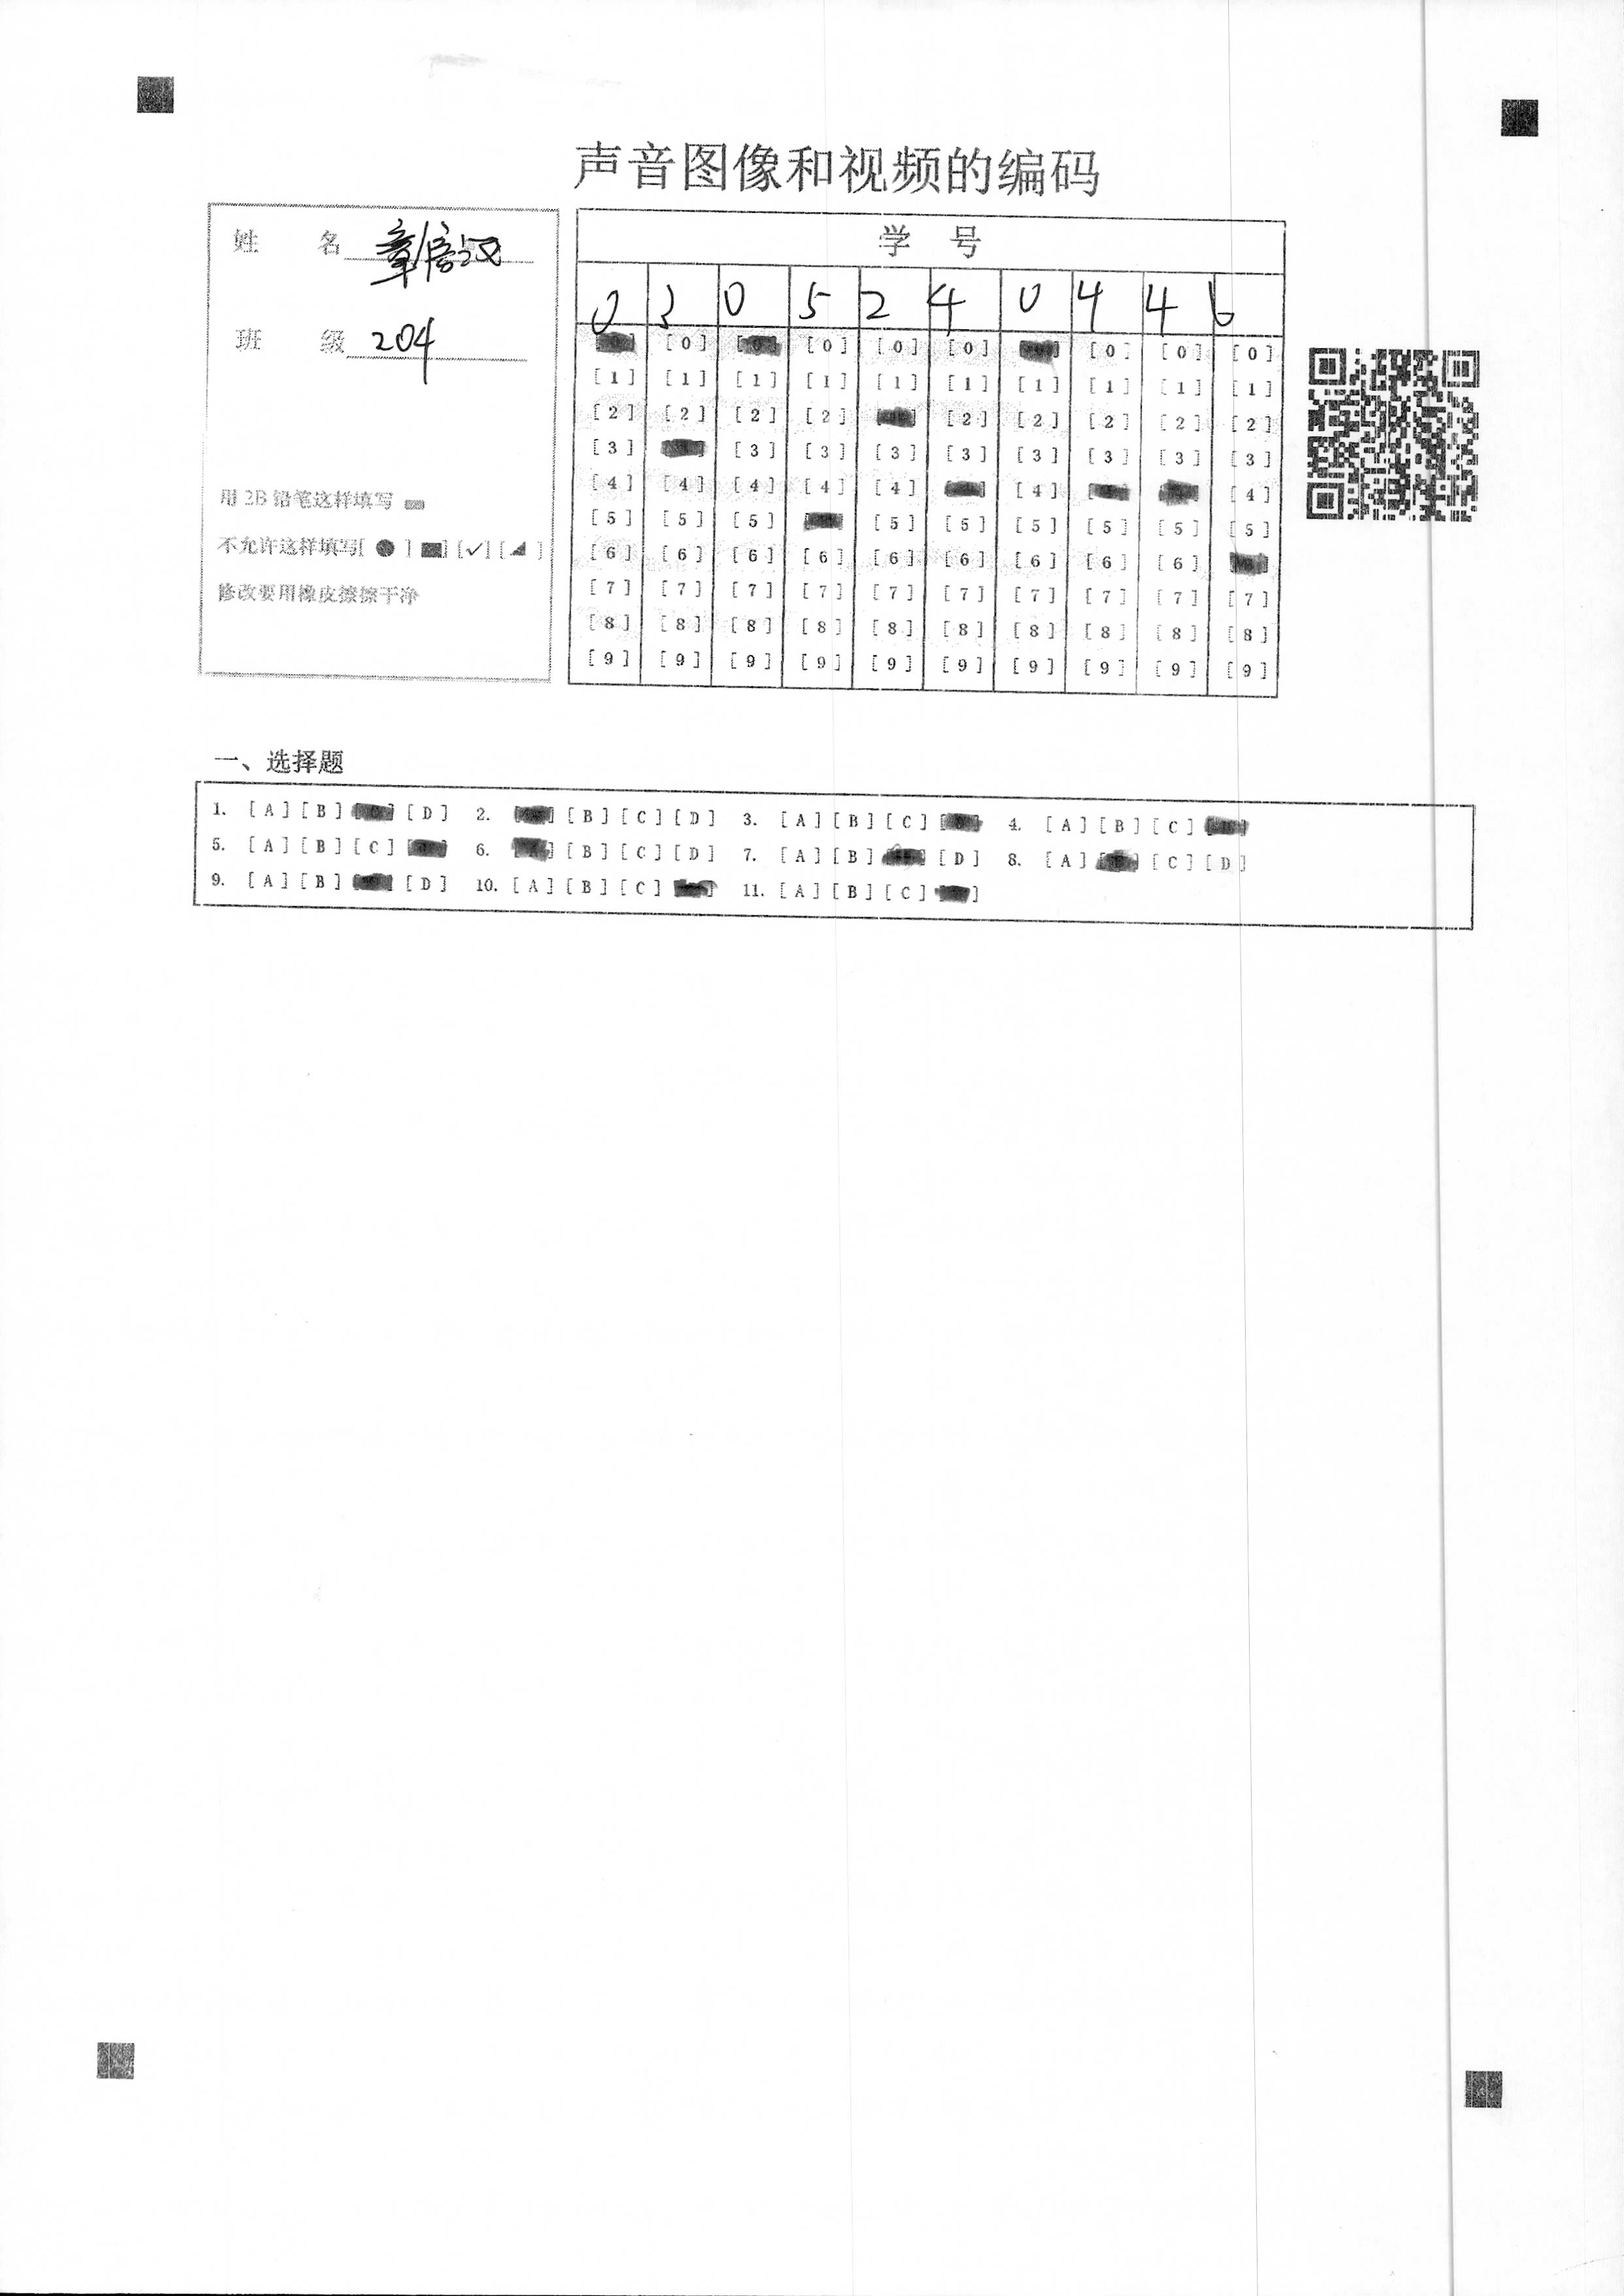 声音图像和视频的编码
姓 名 章
班 级 204
用 2B 铅笔这样填写
不允许这样填写[ ● ] ■] [✓] [◢ ]
修改要用橡皮擦擦干净
学 号
0 3 0 5 2 4 0 4 4 6
[0] [0] [0] [0] [0] [0] [0]
[1] [1] [1] [1] [1] [1] [1] [1] [1] [1]
[2] [2] [2] [2] [2] [2] [2] [2] [2]
[3] [3] [3] [3] [3] [3] [3] [3] [3]
[4] [4] [4] [4] [4] [4] [4]
[5] [5] [5] [5] [5] [5] [5] [5] [5]
[6] [6] [6] [6] [6] [6] [6] [6] [6]
[7] [7] [7] [7] [7] [7] [7] [7] [7] [7]
[8] [8] [8] [8] [8] [8] [8] [8] [8] [8]
[9] [9] [9] [9] [9] [9] [9] [9] [9] [9]
一、选择题
1. [A] [B] [D] 2. [B] [C] [D] 3. [A] [B] [C] 4. [A] [B] [C]
5. [A] [B] [C] 6. [B] [C] [D] 7. [A] [B] [D] 8. [A] [C] [D]
9. [A] [B] [D] 10. [A] [B] [C] 11. [A] [B] [C]